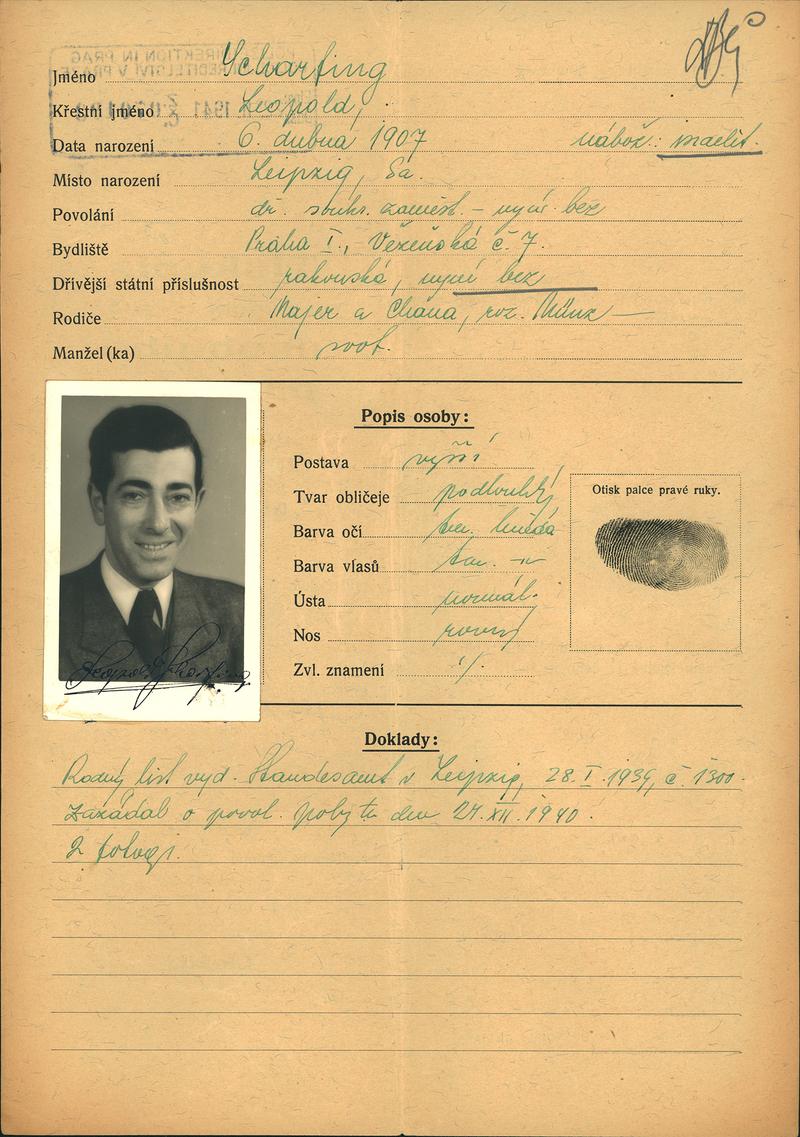 Jméno Scharfing
Křestní jméno Leopold,
Data narození 6. dubna 1907 nábož.: israelit.
Místo narození Leipzig, Sa.
Povolání dř. soukr. zaměst. – nyní bez
Bydliště Praha I., Vězeňská č. 7.
Dřívější státní příslušnost rakouská, nyní bez
Rodiče Majer a Chana, roz. Münz —
Manžel (ka) svob.
Popis osoby:
Postava vyšší
Tvar obličeje podlouhlý
Otisk palce pravé ruky.
Barva očí tm. hnědá
Barva vlasů tm. –"–
Ústa normál.
Nos rovný
Zvl. znamení ·/.
Leopold Scharfing
Doklady:
Rodný list vyd. Standesamt v Leipzig, 28. I. 1939, č. 1300.
Zažádal o povol. pobytu dne 27. XII. 1940.
2 fotogr.